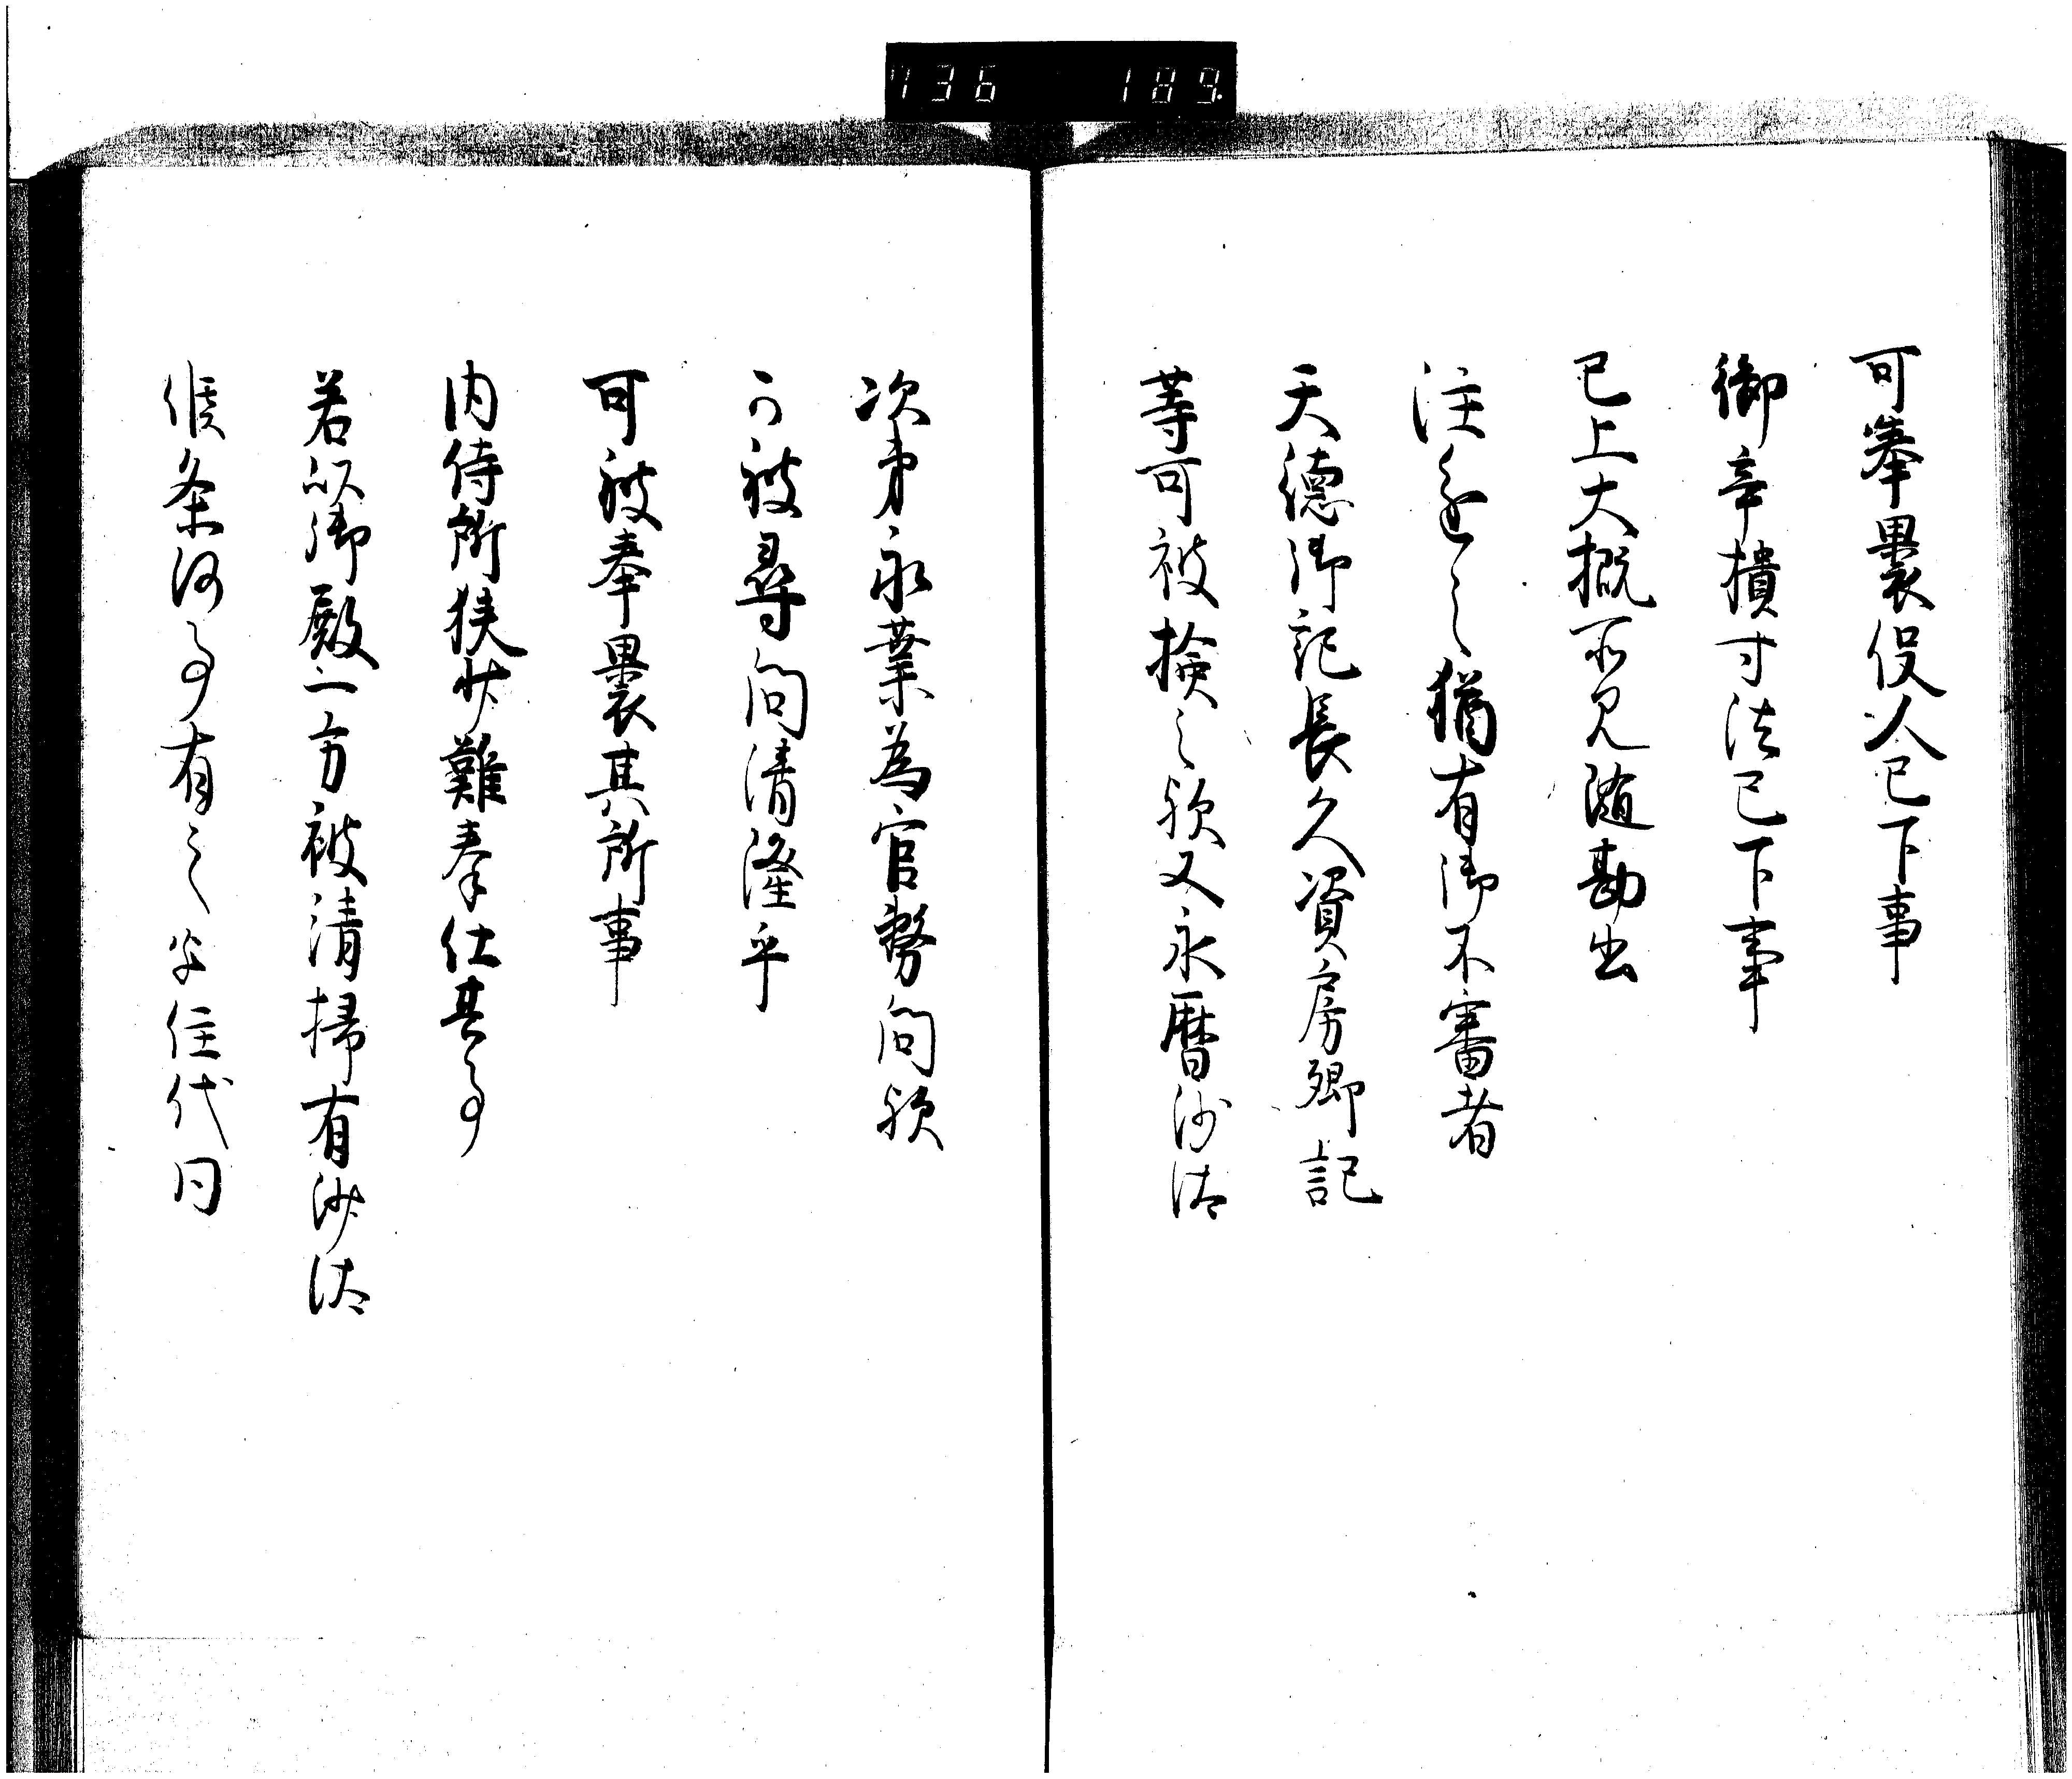 736 189
可奉裹役人已下事
御辛櫃寸法已下事
已上大概所見随勘出
注進之猶有御不審者
天徳御記長久資房卿記
等可被撿之歟又永暦沙汰
次第永業為官務問歟
可被尋問清隆乎
可被奉裹其所事
内侍所狭少難奉仕其事
若以御殿一方被清掃有沙汰
候条何事有之 住代同